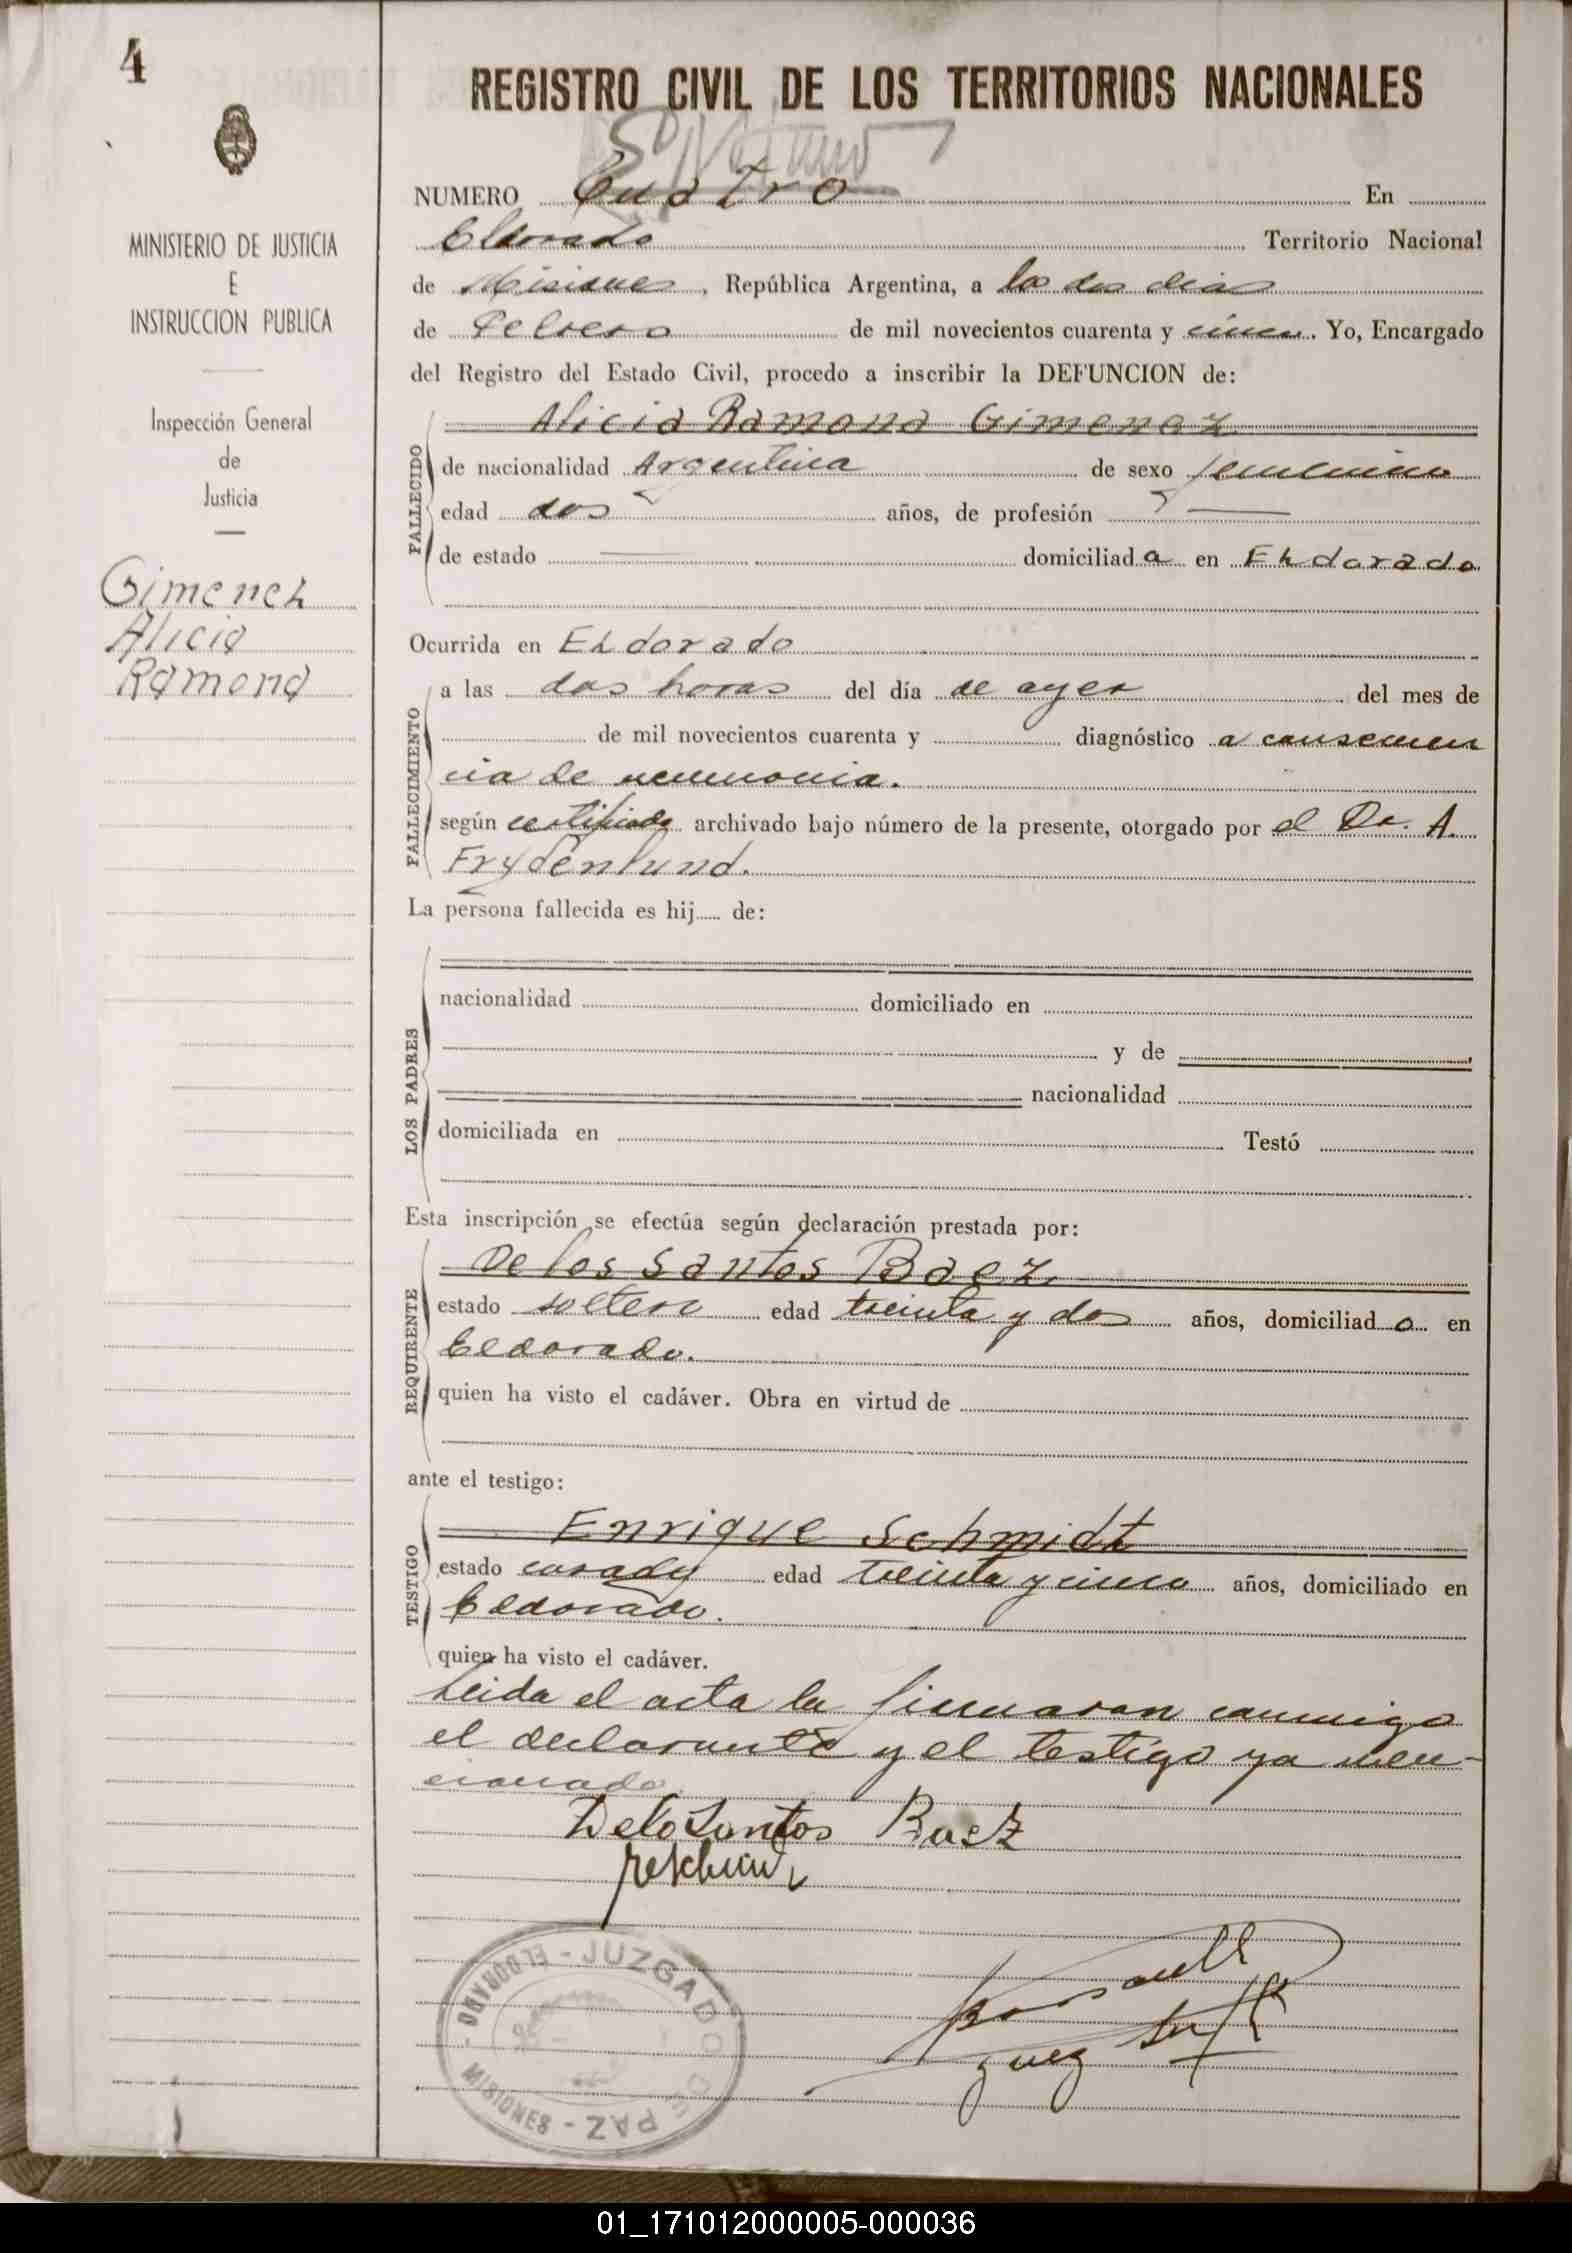 4
REGISTRO CIVIL DE LOS TERRITORIOS NACIONALES
MINISTERIO DE JUSTICIA
E
INSTRUCCION PUBLICA
Inspección General
de
Justicia
Gimenez
Alicia
Ramona
NUMERO Cuatro En
Eldorado Territorio Nacional
de Misiones, República Argentina, a los dos dias
de Febrero de mil novecientos cuarenta y cinco. Yo, Encargado
del Registro del Estado Civil, procedo a inscribir la DEFUNCION de:
FALLECIDO
Alicia Ramona Gimenez
de nacionalidad Argentina de sexo femenino
edad dos años, de profesión —
de estado — domiciliada en Eldorado
Ocurrida en Eldorado
FALLECIMIENTO
a las dos horas del día de ayer del mes de
de mil novecientos cuarenta y diagnóstico a consecuen
cia de neumonia.
según certificado archivado bajo número de la presente, otorgado por el Dr. A.
Frydenlund.
La persona fallecida es hij de:
LOS PADRES
nacionalidad domiciliado en
y de
nacionalidad
domiciliada en Testó
Esta inscripción se efectúa según declaración prestada por:
REQUIRENTE
De los Santos Baez
estado soltero edad treinta y dos años, domiciliado en
Eldorado.
quien ha visto el cadáver. Obra en virtud de
ante el testigo:
TESTIGO
Enrique Schmidt
estado casado edad treinta y cinco años, domiciliado en
Eldorado.
quien ha visto el cadáver.
Leida el acta la firmaron conmigo
el declarante y el testigo ya men-
cionado.
Delosantos Baez
JUZGADO DE PAZ - MISIONES - ELDORADO -
Juez
01_171012000005-000036